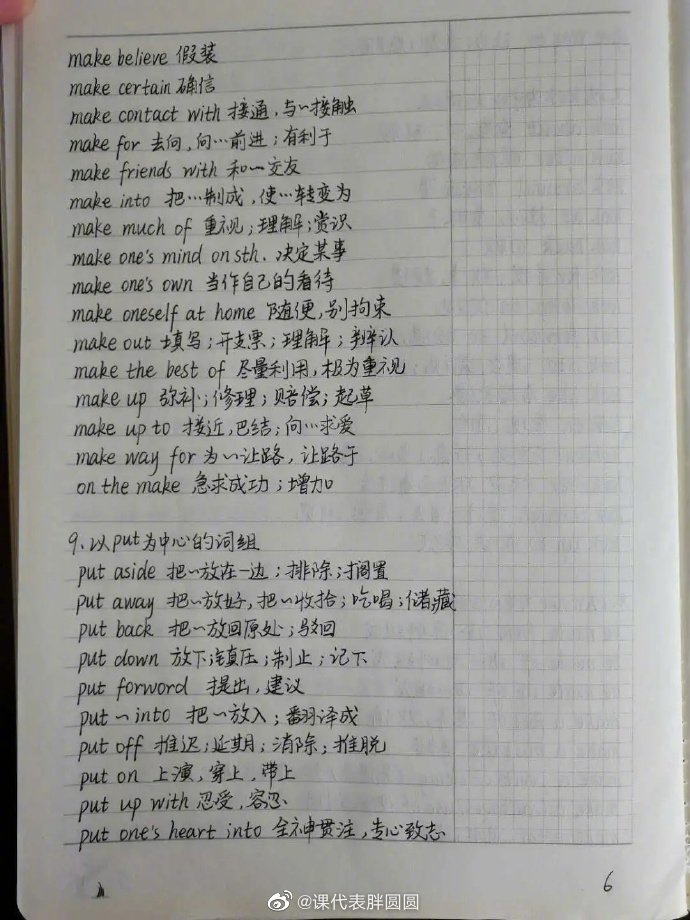 make believe 假装
make certain 确信
make contact with 接通,与~接触
make for 去向,向…前进;有利于
make friends with 和~交友
make into 把…制成,使…转变为
make much of 重视;理解;赏识
make one's mind on sth. 决定某事
make one's own 当作自己的看待
make oneself at home 随便,别拘束
make out 填写;开支票;理解;辨认
make the best of 尽量利用,极为重视
make up 弥补;修理;赔偿;起草
make up to 接近,巴结;向…求爱
make way for 为~让路,让路于
on the make 急求成功;增加
9.以put为中心的词组
put aside 把~放在一边;排除;搁置
put away 把~放好,把~收拾;吃喝;储藏
put back 把~放回原处;驳回
put down 放下;镇压;制止;记下
put forword 提出,建议
put~into 把~放入;翻译成
put off 推迟;延期;消除;推脱
put on 上演,穿上,带上
put up with 忍受,容忍
put one's heart into 全神贯注,专心致志
6
@课代表胖圆圆